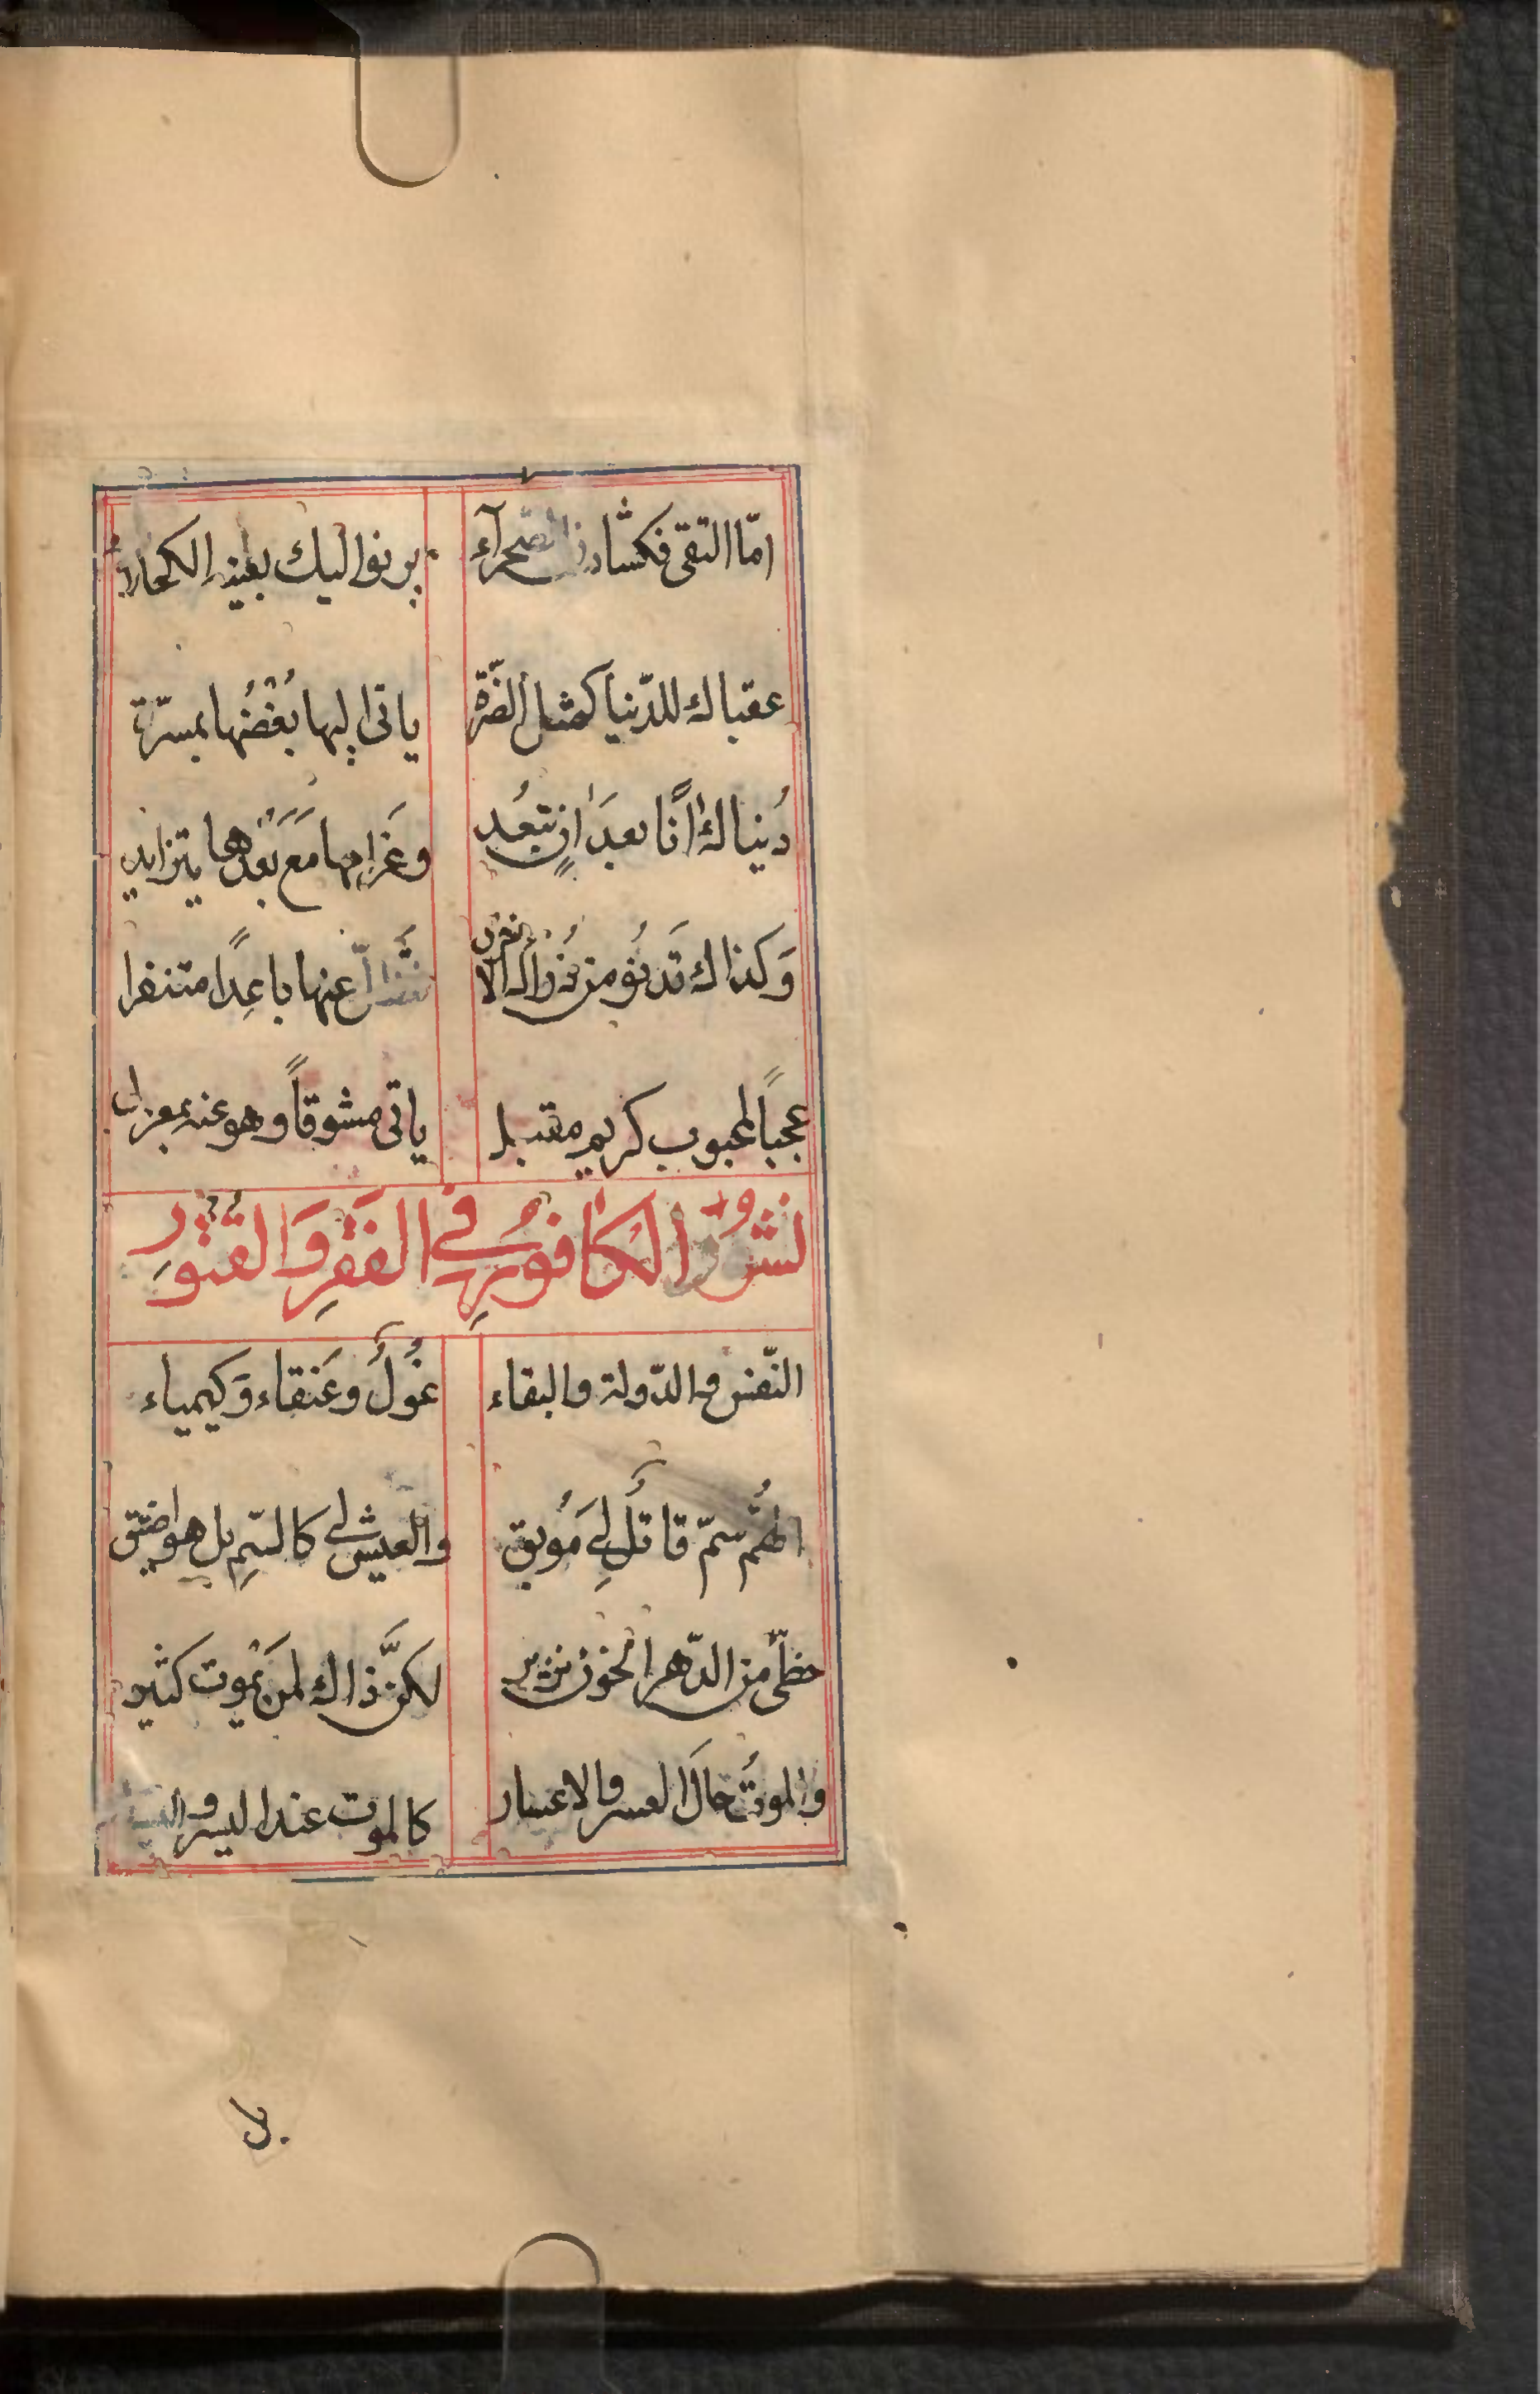 امّا التقى فكشادن الصحرآء يرنوا اليك بعينه الكحلاء
عقباك للدّنيا كمثل الضّرّة ياتى اليها بُغْضُها بمسرّة
دُنياكَ اٰنًا بعدَ اٰنٍ تبعُد وغَرامها مَعَ بَعْدها يتزايد
وَكذاك تَدنُو من ذُراك الا عنها باعِدًا متنفرا
عجباً لمحبوب كريم مقبل ياتى مشوقاً وهو عنه بمعزل
نشورُ الكافورِ في الفَقرِ وَالقتور
النّفس والدّولة والبقاء غُولٌ وعَنقاء وَكيمياء
الهُمُّ سمّ قاتلٌ لِي مَوُبق والعيش لي كالسّمِ بل هو اضيق
حظّى من الدّهر الخون نزير لكنَّ ذاك لمن يَموت كثير
والموتُ حالَ العسر والاعسار كالموت عند اليسر و